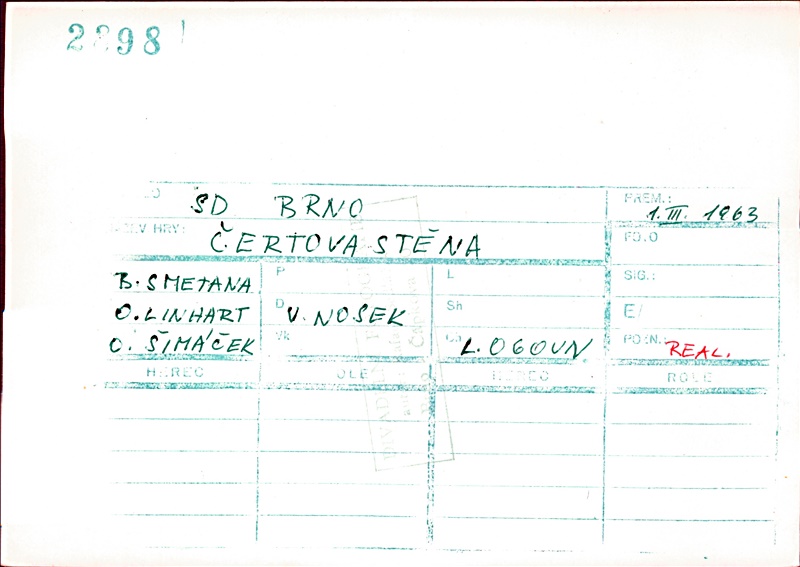 2898
SD BRNO
PREM.: 1. III. 1963
HRY: ČERTOVA STĚNA
B. SMETANA
P
L
SIG.:
O. LINHART
D V. NOSEK
Sh
E/
O. ŠIMÁČEK
Vk
L. OGOUN
POZN. REAL.
HEREC
HEREC
ROLE